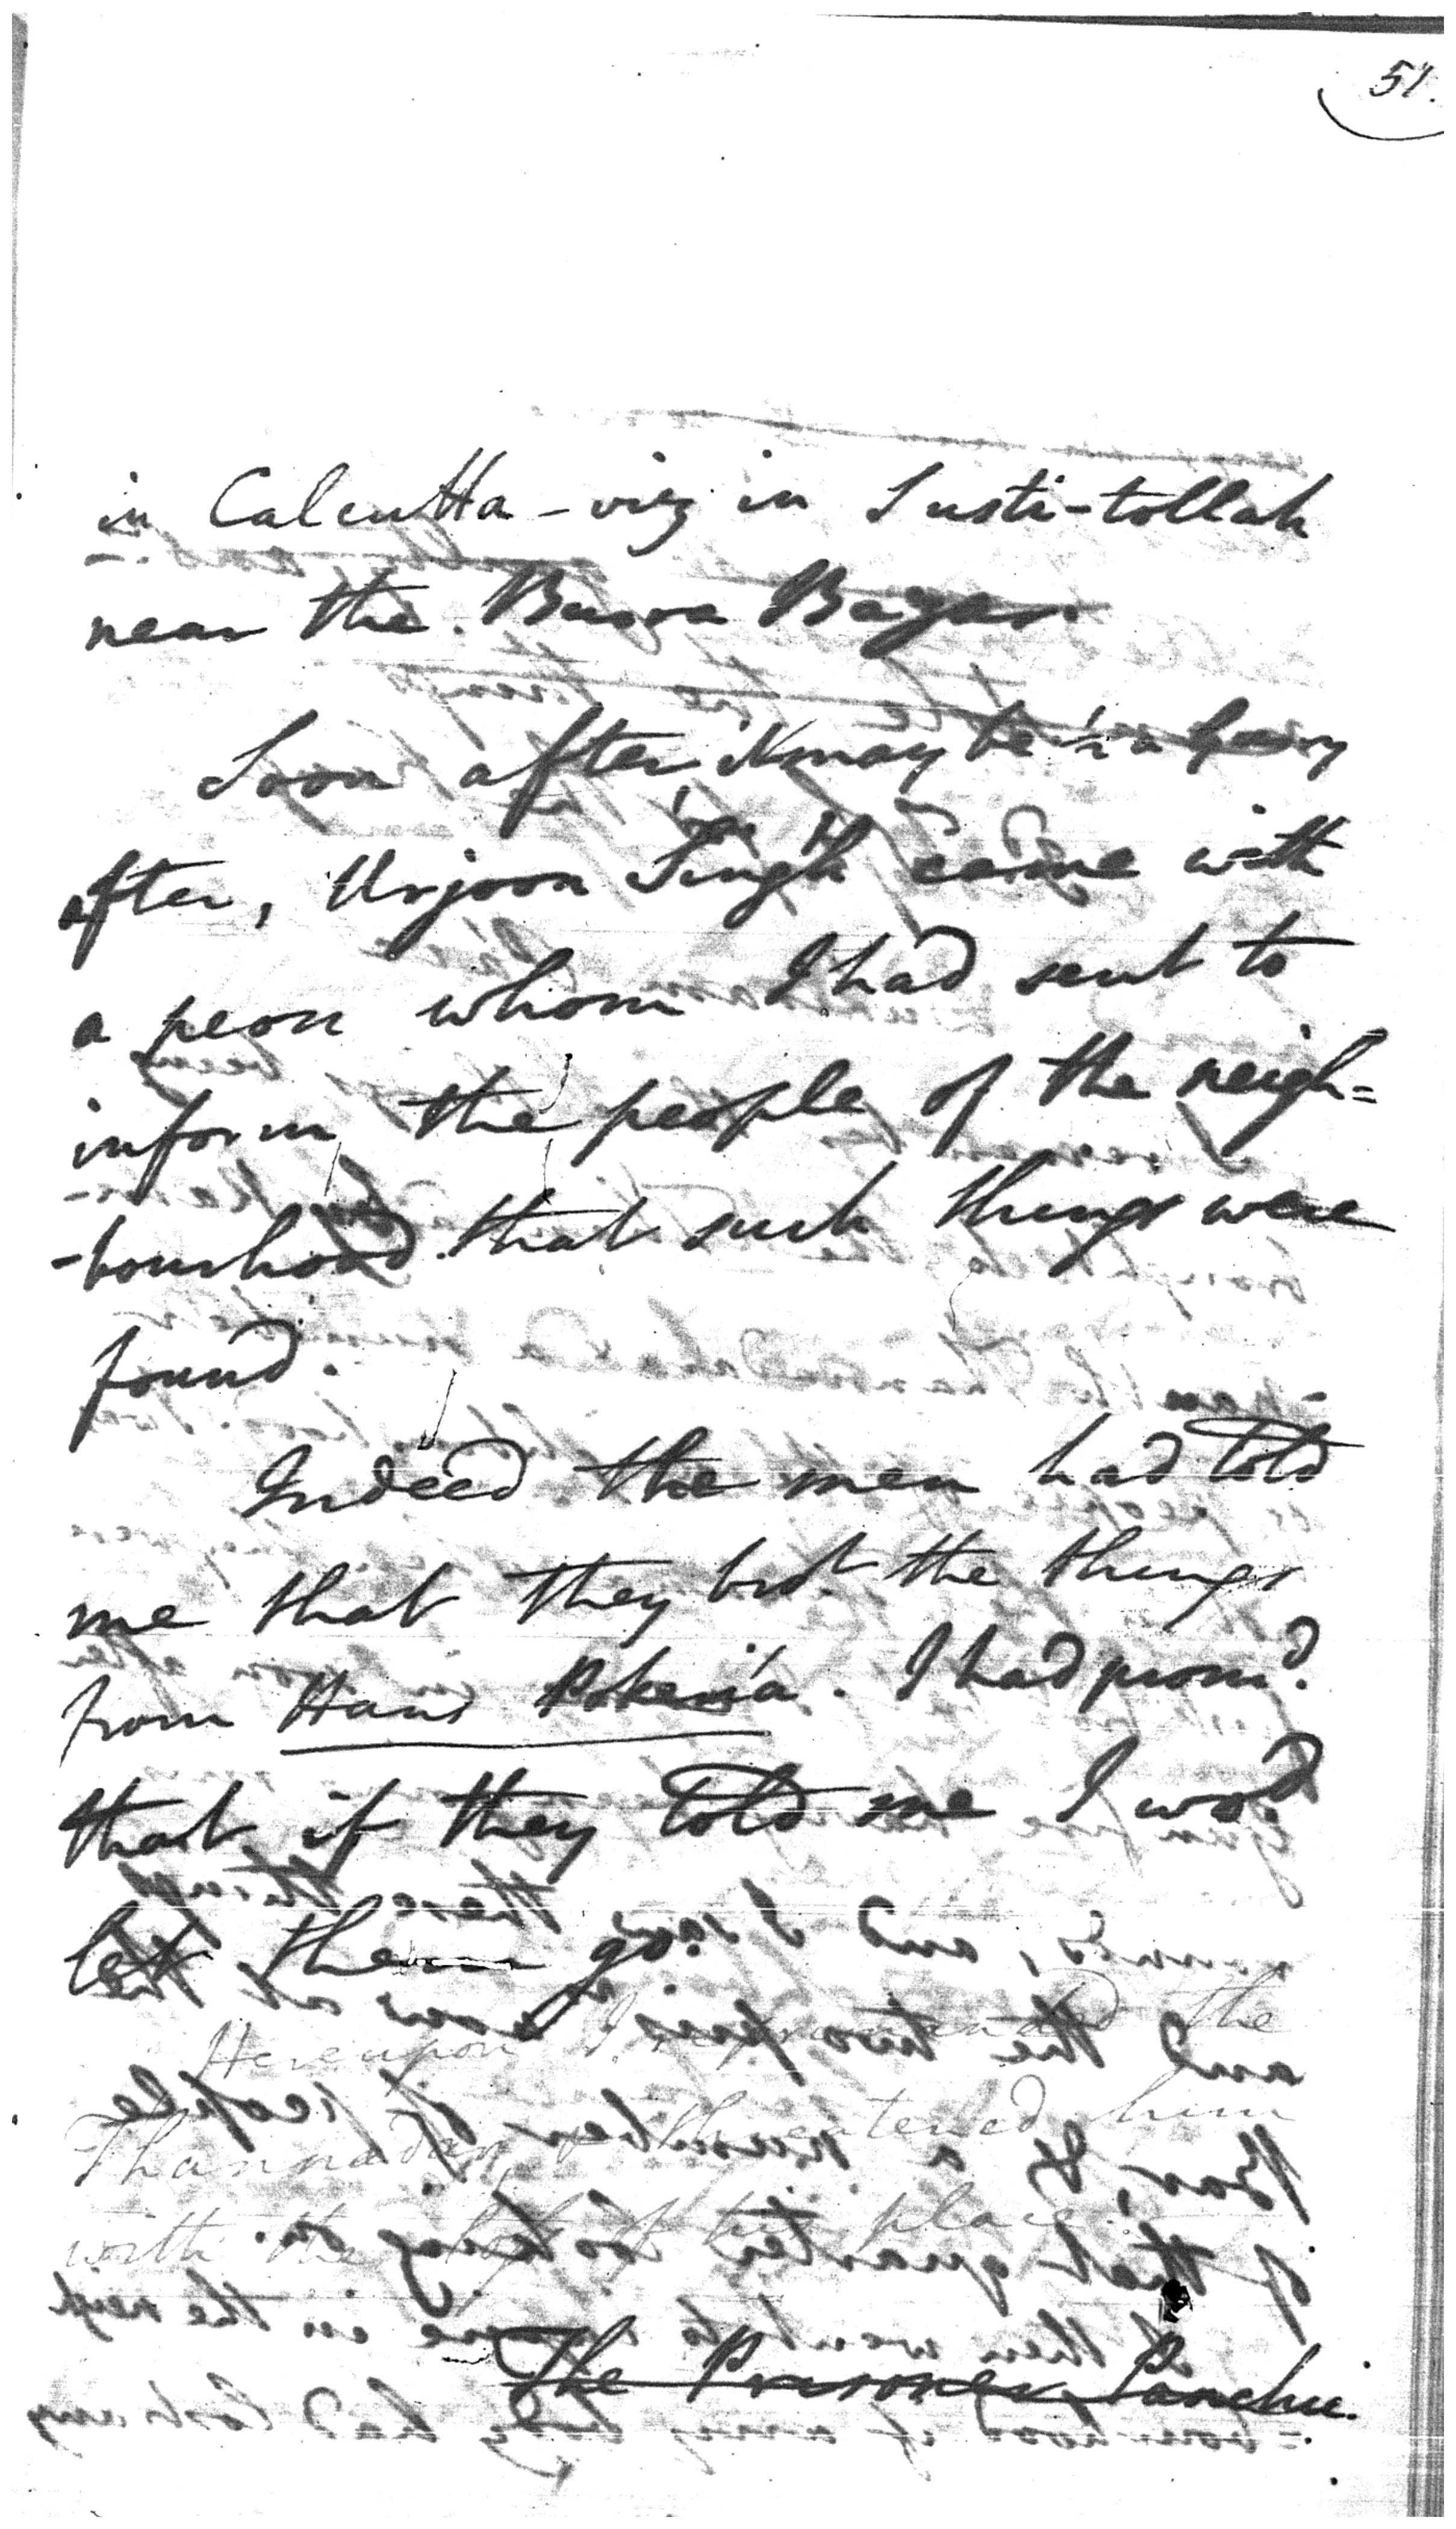 51.
in Calcutta - viz in Susti-tollah
near the Burra Bazar.
Soon after it may be in a
after, Urjoon Singh came with
a peon whom I had sent to
inform the people of the neigh=
-bourhood that such things were
found.
Indeed the men had told
me that they brot. the things
from Hans . I had promd.
that if they told me I wod.
let them go.
Hereupon I reprimanded the
Thannadar, & threatened him
with the loss of his place.
The Prisoner Panchu.